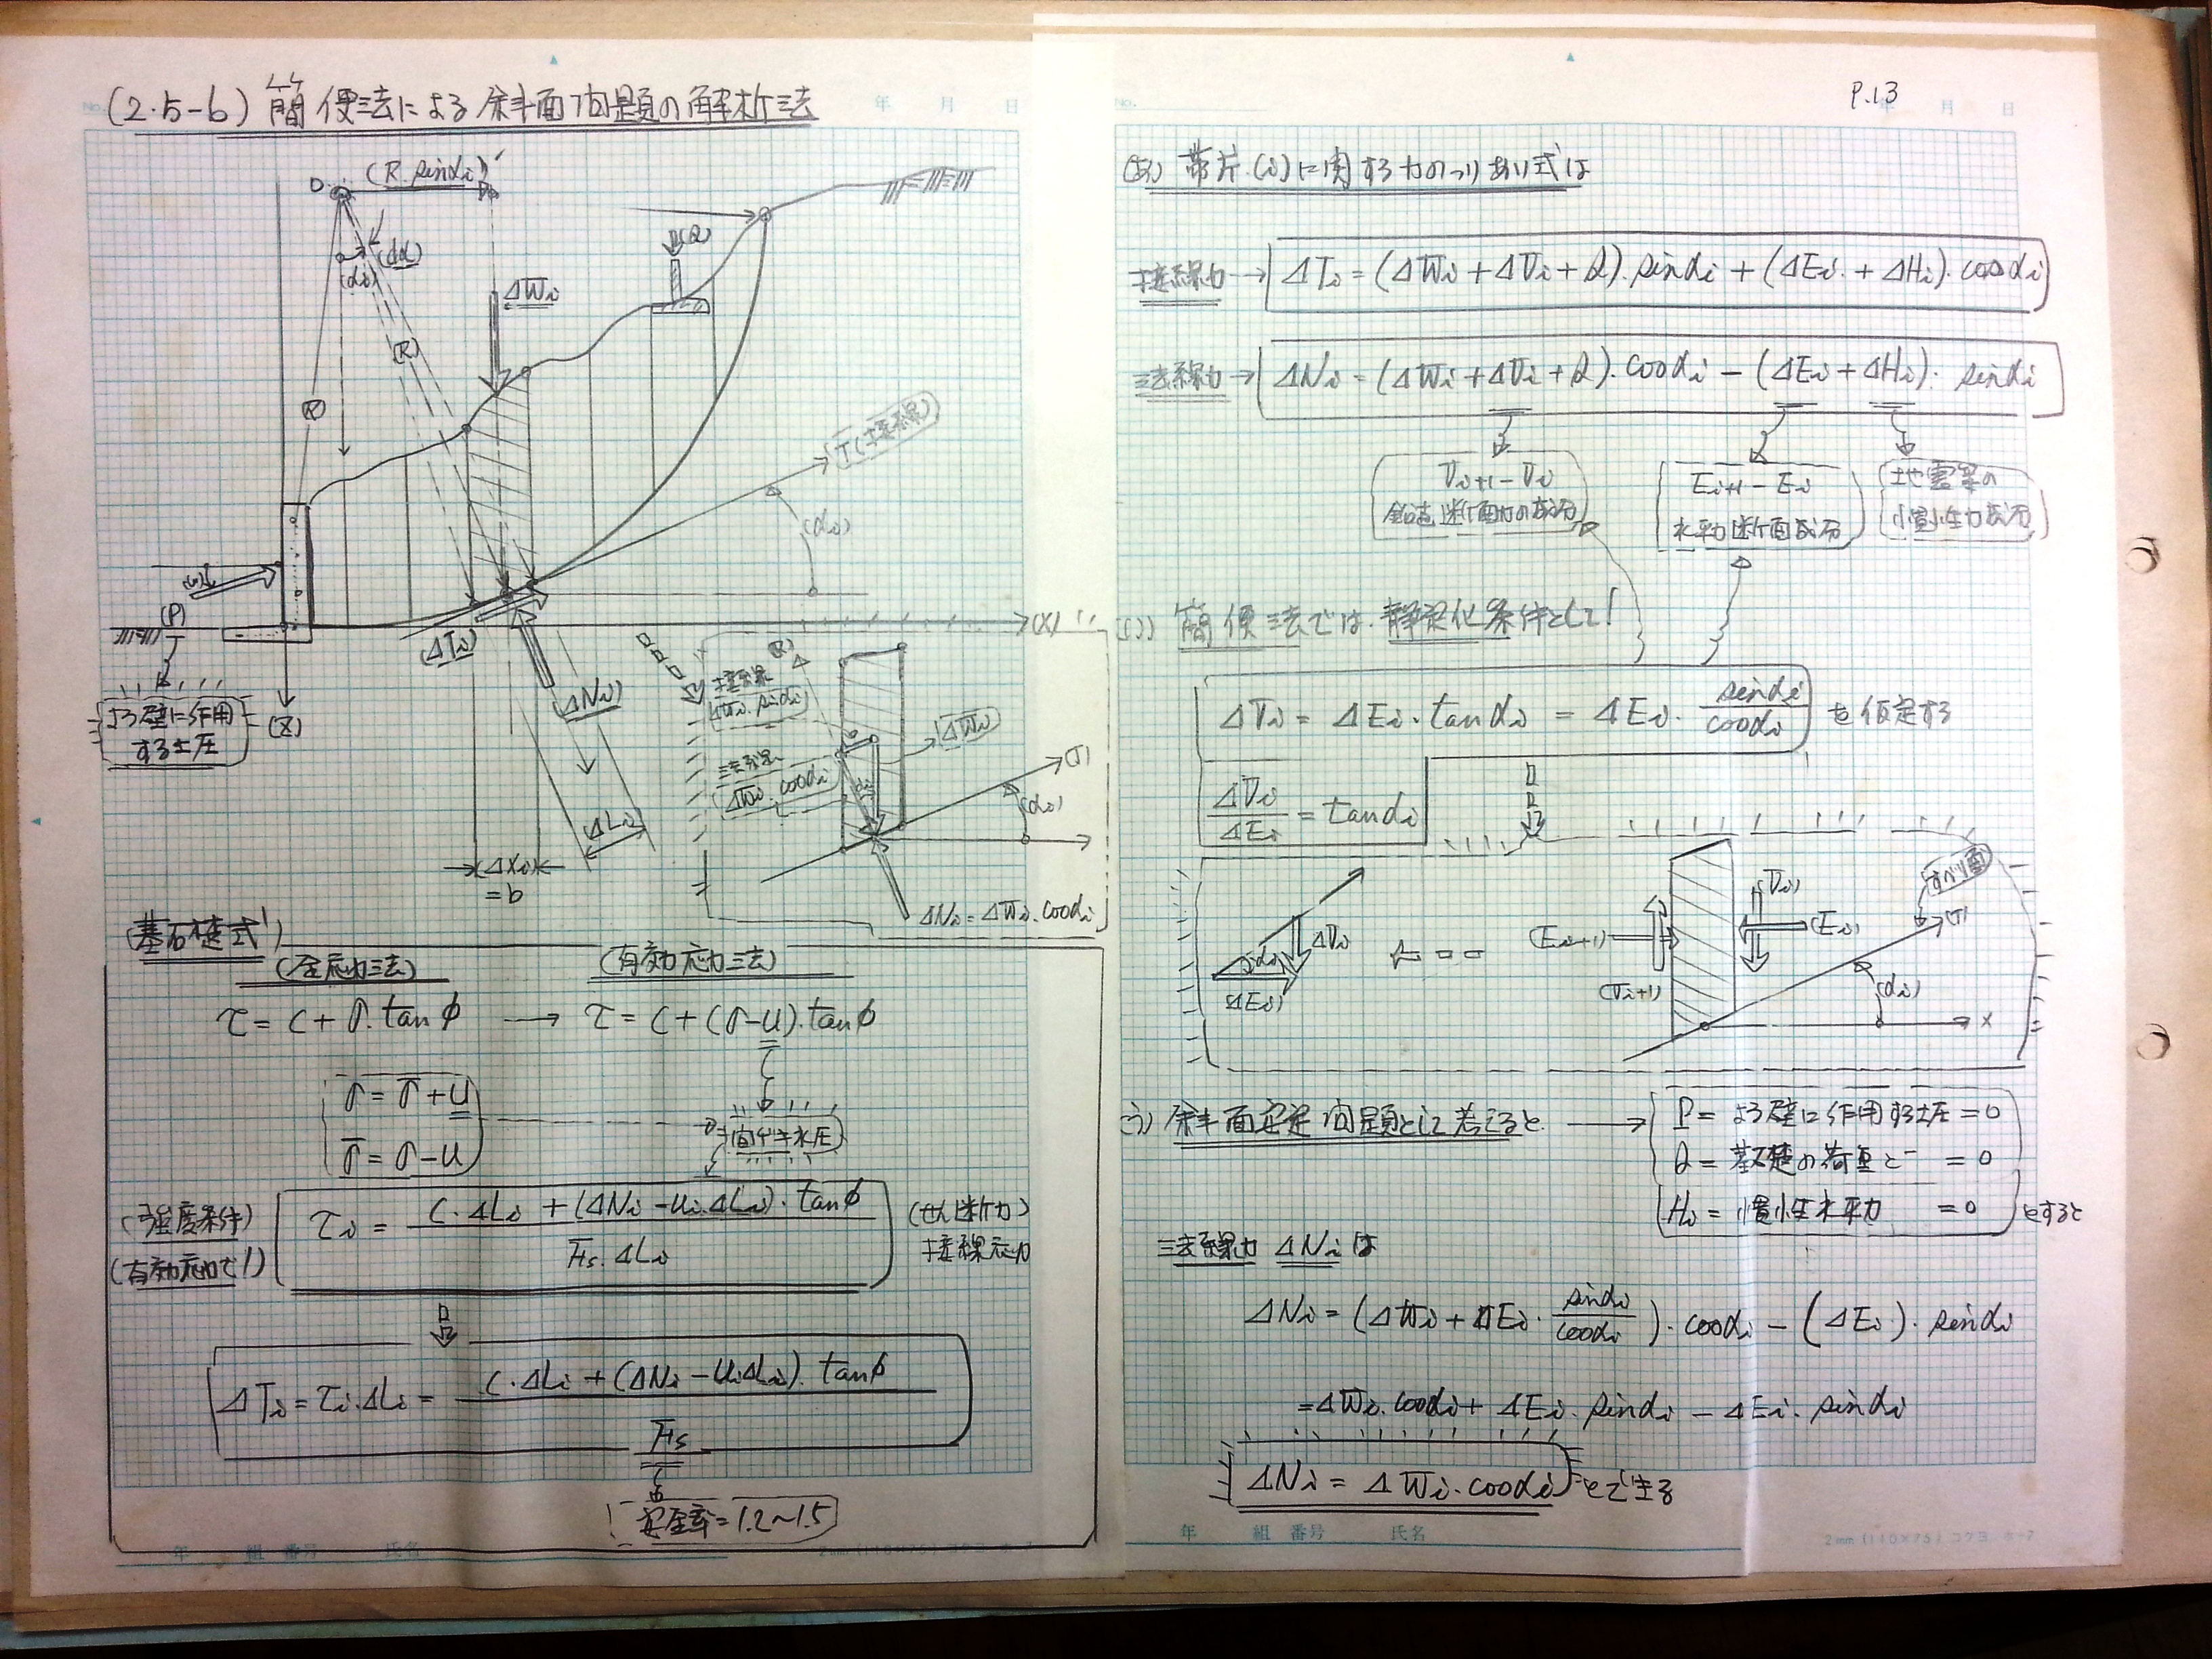 (2.5-b) 簡便法による斜面問題の解析法
O
(R.sinαi)
(dα)
(αi)
(R)
ΔWi
(Q)
T(接線)
(αi)
(P)
よう壁に作用
する土圧
(Z)
(X)
(ΔTi)
(ΔNi)
(ΔLi)
(ΔXi)
=b
(R)
接線
ΔWi.sinαi
法線
ΔWi.cosαi
(ΔWi)
(T)
(αi)
ΔNi=ΔWi.cosαi
(基礎式)
(全応力法)
(有効応力法)
τ= C+σ.tanφ → τ= C+(σ-u).tanφ
σ=σ̄+u
σ̄=σ-u
間ゲキ水圧
(強度条件)
(有効応力で!)
τi = C.ΔLi +(ΔNi -ui.ΔLi).tanφ / Fs.ΔLi
(せん断力)
接線応力
ΔTi=τi.ΔLi= C.ΔLi +(ΔNi -uiΔLi).tanφ / Fs
安全率=1.2~1.5
年 組 番号 氏名
No.
年 月 日
P.13
(あ) 帯片(i)に関する力のつりあい式は
接線力→ ΔTi =(ΔWi+ΔVi+Q).sinαi +(ΔEi+ΔHi).cosαi
法線力→ ΔNi =(ΔWi+ΔVi+Q).cosαi -(ΔEi+ΔHi).sinαi
Vi+1-Vi
鉛直断面力の成分
Ei+1-Ei
水平力断面成分
地震等の
慣性力成分
(い) 簡便法では、静定化条件として!
ΔVi = ΔEi.tanαi = ΔEi. sinαi/cosαi を仮定する
ΔVi/ΔEi = tanαi
αi
ΔVi
(ΔEi)
(Ei+1)
(Vi+1)
(Vi)
(Ei)
すべり面
(T)
(αi)
X
う) 斜面安定問題として考えると → P= よう壁に作用する土圧=0
Q=基礎の荷重ど =0
Hi=慣性水平力 =0 とすると
法線力 ΔNi は
ΔNi=(ΔWi+ΔEi. sinαi/cosαi).cosαi-(ΔEi).sinαi
=ΔWi.cosαi+ΔEi.sinαi-ΔEi.sinαi
ΔNi = ΔWi.cosαi とできる
年 組 番号 氏名
2mm (110×75) コクヨ ホ-7